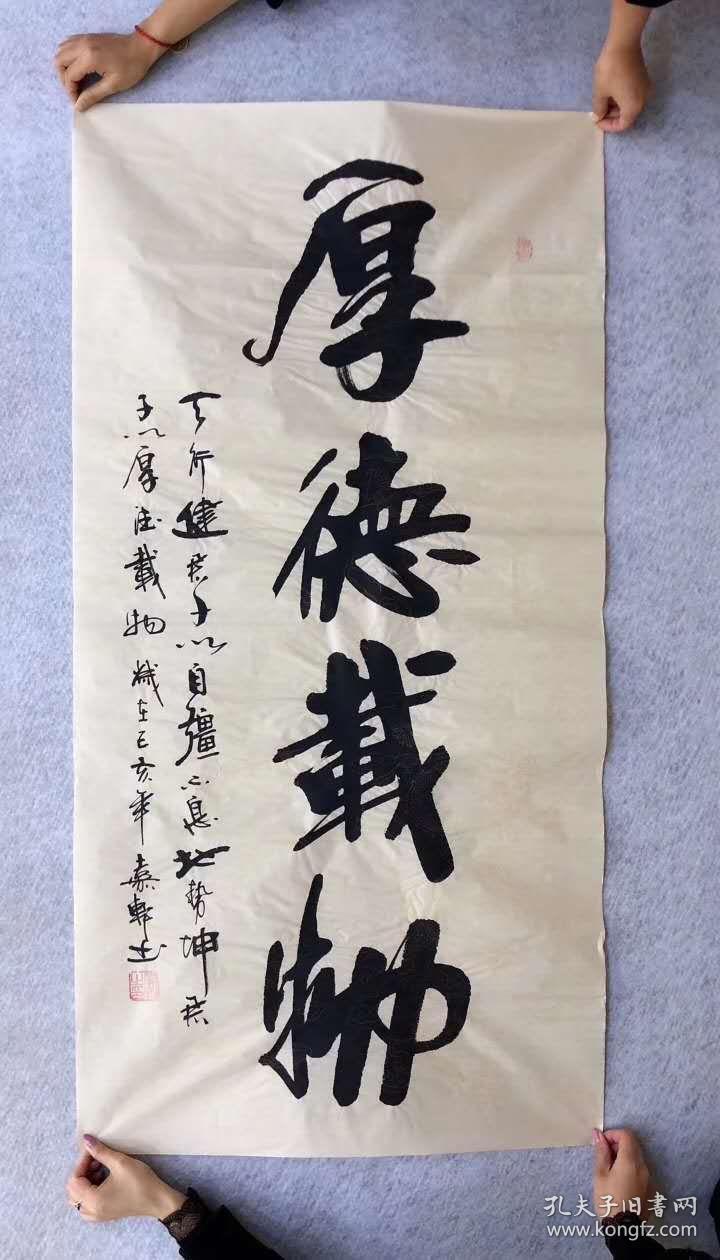 厚德載物
天行健君子以自彊不息地勢坤君
子以厚德載物 歲在己亥年 嘉軒書
孔夫子旧書网
www.kongfz.com